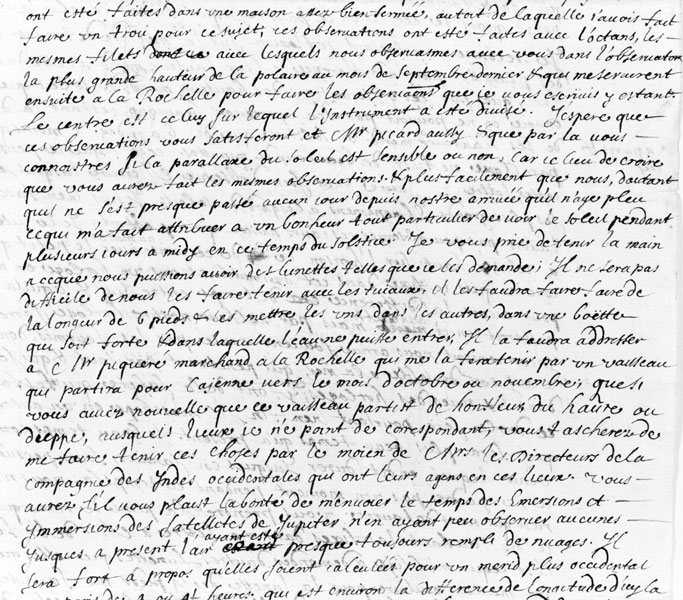 ont esté faites dans une maison assez bien fermée, au toit de laquelle j'avois fait
faire un trou pour ce sujet, ces observations ont esté faites avec l'octans, les
mesmes filets avec lesquels nous observasmes avec vous dans l'observatoire
la plus grande hauteur de la polaire au mois de septembre dernier & qui me servirent
ensuite a la Rochelle pour faire les observaons que je vous escrivis y estant.
Le centre est celuy sur lequel l'Instrument a esté divisé. J'espere que
ces observations vous satisferont et Mr picard aussy & que par la vous
connoistres si la parallaxe du soleil est sensible ou non, car ce lieu de croire
que vous aurez fait les mesmes observations & plus facilement que nous, dautant
qu'il ne s'est presque passé aucun jour depuis nostre arrivée qu'il n'aye pleu
ce qui m'a fait attribuer a un bonheur tout particulier de voir le soleil pendant
plusieurs jours a midy en ce temps du solstice. Je vous prie de tenir la main
a ceque nous puissions avoir des lunettes telles que je les demande; Il ne sera pas
difficile de nous les faire tenir avec les tuiaux, il les faudra faire faire de
la longeur de 6 pieds & les mettre les uns dans les autres, dans une boëtte
qui soit forte & dans laquelle l'eau ne puisse entrer, Il la faudra addresser
a Mr piqueré marchand a la Rochelle qui me la fera tenir par un vaisseau
qui partira pour Cajenne vers le mois d'octobre ou novembre; que si
vous aviez nouvelle que ce vaisseau partist de honfleur, du havre ou
dieppe, ausquels lieux je ne point de corespondant, vous tascherez de
me faire tenir ces choses par le moien de Mrs les Directeurs de la
compagnie des Indes occidentales qui ont leurs agens en ces lieux vous
aurez s'il vous plaist la bonté de m'envoier le temps des Emersions et
Immersions des satellites de Jupiter n'en ayant peu observer aucunes
jusques a present l'air ayant esté presque tousjours rempli de nuages. Il
sera fort a propos qu'elles soient calculées pour un merid plus occidental
heures, qui est environ la difference de longitude d'icy la